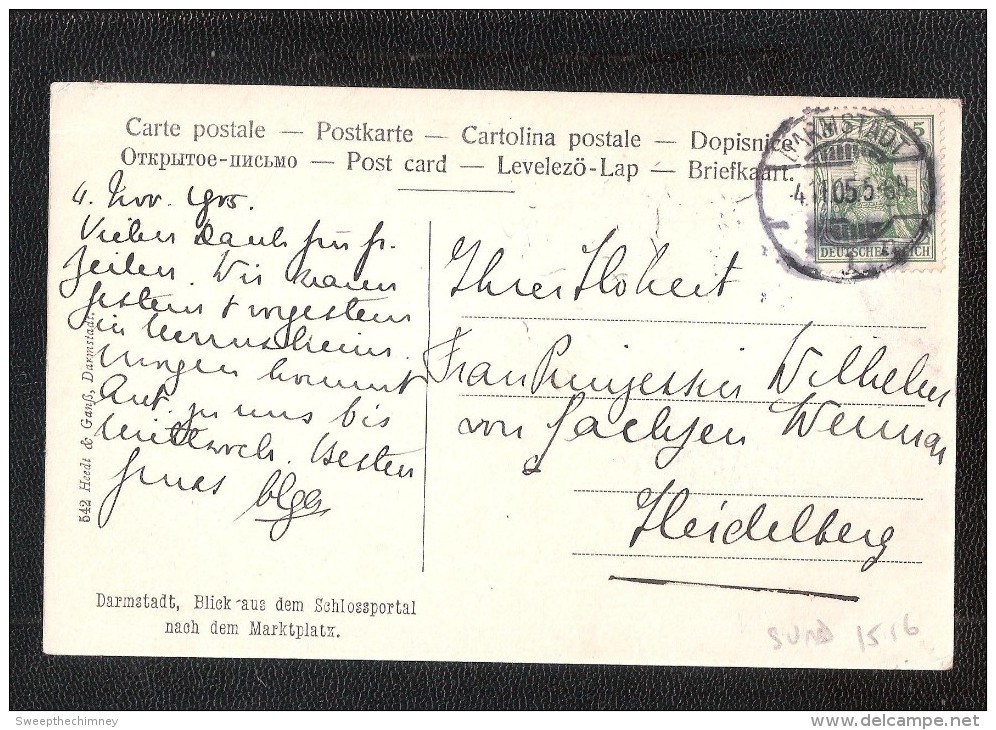 Carte postale — Postkarte — Cartolina postale — Dopisnice
Открытое-письмо — Post card — Levelező-Lap — Briefkaart.
DARMSTADT
4.11.05.5-6N
5
DEUTSCHES REICH
4. Nov. 1905.
Vielen Dank für fr.
Zeilen. Wir waren
gestern & vorgestern
in
Morgen kommt
zu uns bis
Mittwoch. Besten
Gruss
Ihrer Hoheit
Frau Prinzessin Wilhelm
von Sachsen Weimar
Heidelberg
542 Heedt & Ganß, Darmstadt.
Darmstadt, Blick aus dem Schlossportal
nach dem Marktplatz.
1516
Sweepthechimney
delcampe.net